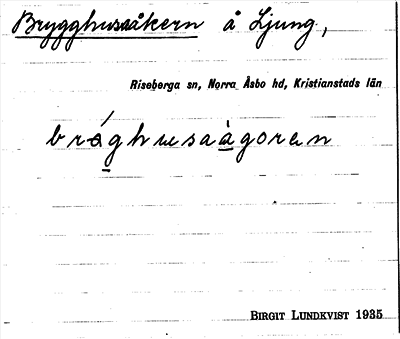 Brygghusåkern å Ljung,
Riseberga sn, Norra Åsbo hd, Kristianstads län
BIRGIT LUNDKVIST 1935